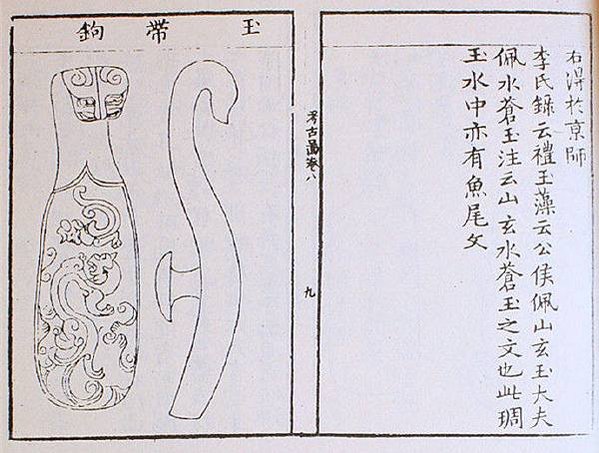 右淂於京師
李氏錄云禮玉藻云公侯佩山玄玉大夫
佩水蒼玉注云山玄水蒼玉之文也此琱
玉水中亦有魚尾文
考古圖卷八
九
玉帶鉤